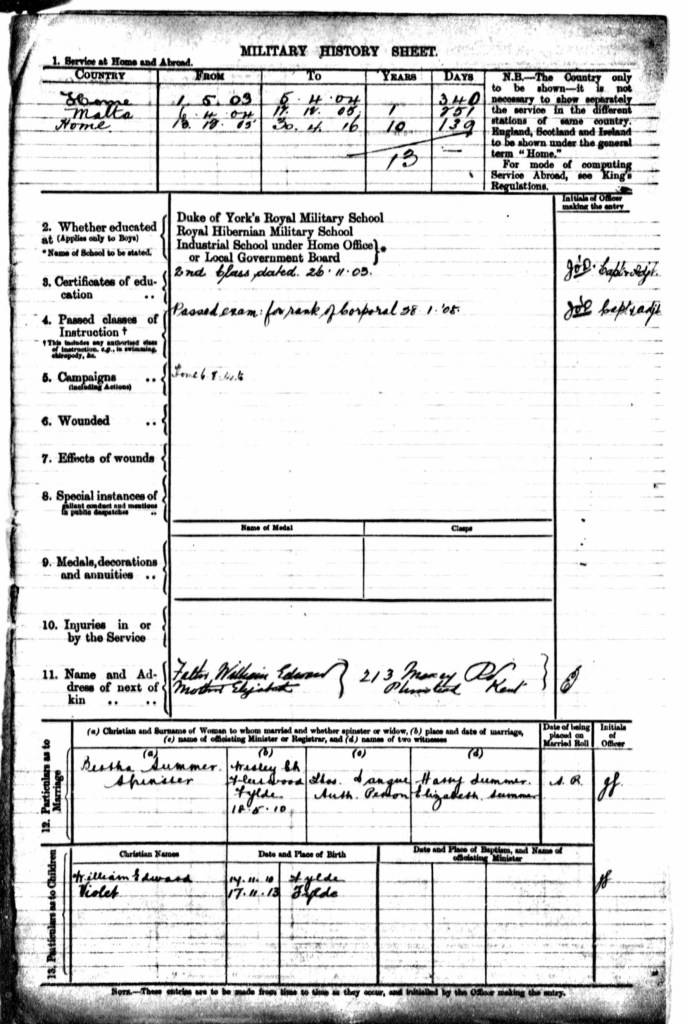 MILITARY HISTORY SHEET.
1. Service at Home and Abroad.
COUNTRY FROM TO YEARS DAYS
Home 1 5 03 5 4 04 340
Malta 6 4 04 17 12 05 1 251
Home 18 12 05 30 4 16 10 139
13 —
N.B.—The Country only
to be shown—it is not
necessary to show separately
the service in the different
stations of same country.
England, Scotland and Ireland
to be shown under the general
term "Home."
For mode of computing
Service Abroad, see King's
Regulations.
Initials of Officer
making the entry
2. Whether educated
at (Applies only to Boys)
* Name of School to be stated.
Duke of York's Royal Military School
Royal Hibernian Military School
Industrial School under Home Office
or Local Government Board
3. Certificates of education ..
2nd Class, dated. 26.11.03. Capt & Adjt.
4. Passed classes of
Instruction †
† This includes any authorized class
of instruction, e.g., in swimming,
chiropody, &c.
Passed exam: for rank of Corporal 28.1.'05. Capt & Adjt
5. Campaigns ..
(including Actions)
6. Wounded ..
7. Effects of wounds
8. Special instances of
gallant conduct and mentions
in public despatches ..
Name of Medal Clasps
9. Medals, decorations
and annuities ..
10. Injuries in or
by the Service
11. Name and Address of next of
kin .. ..
Father William Edward
Mother Elizabeth
213 Rd
Plumstead Kent
12. Particulars as to Marriage
(a) Christian and Surname of Woman to whom married and whether spinster or widow, (b) place and date of marriage,
(c) name of officiating Minister or Registrar, and (d) names of two witnesses
Date of being
placed on
Married Roll
Initials
of
Officer
(a) (b) (c) (d)
Bertha Summer Wesley Ch Thos. Harry Summer
Spinster Fleetwood Auth. Person Elizabeth Summer
Fylde
18.5.10
13. Particulars as to Children
Christian Names Date and Place of Birth Date and Place of Baptism, and Name of
officiating Minister
William Edward 14.11.10 Fylde
Violet 17.11.13 Fylde
NOTE.—These entries are to be made from time to time as they occur, and initialled by the Officer making the entry.